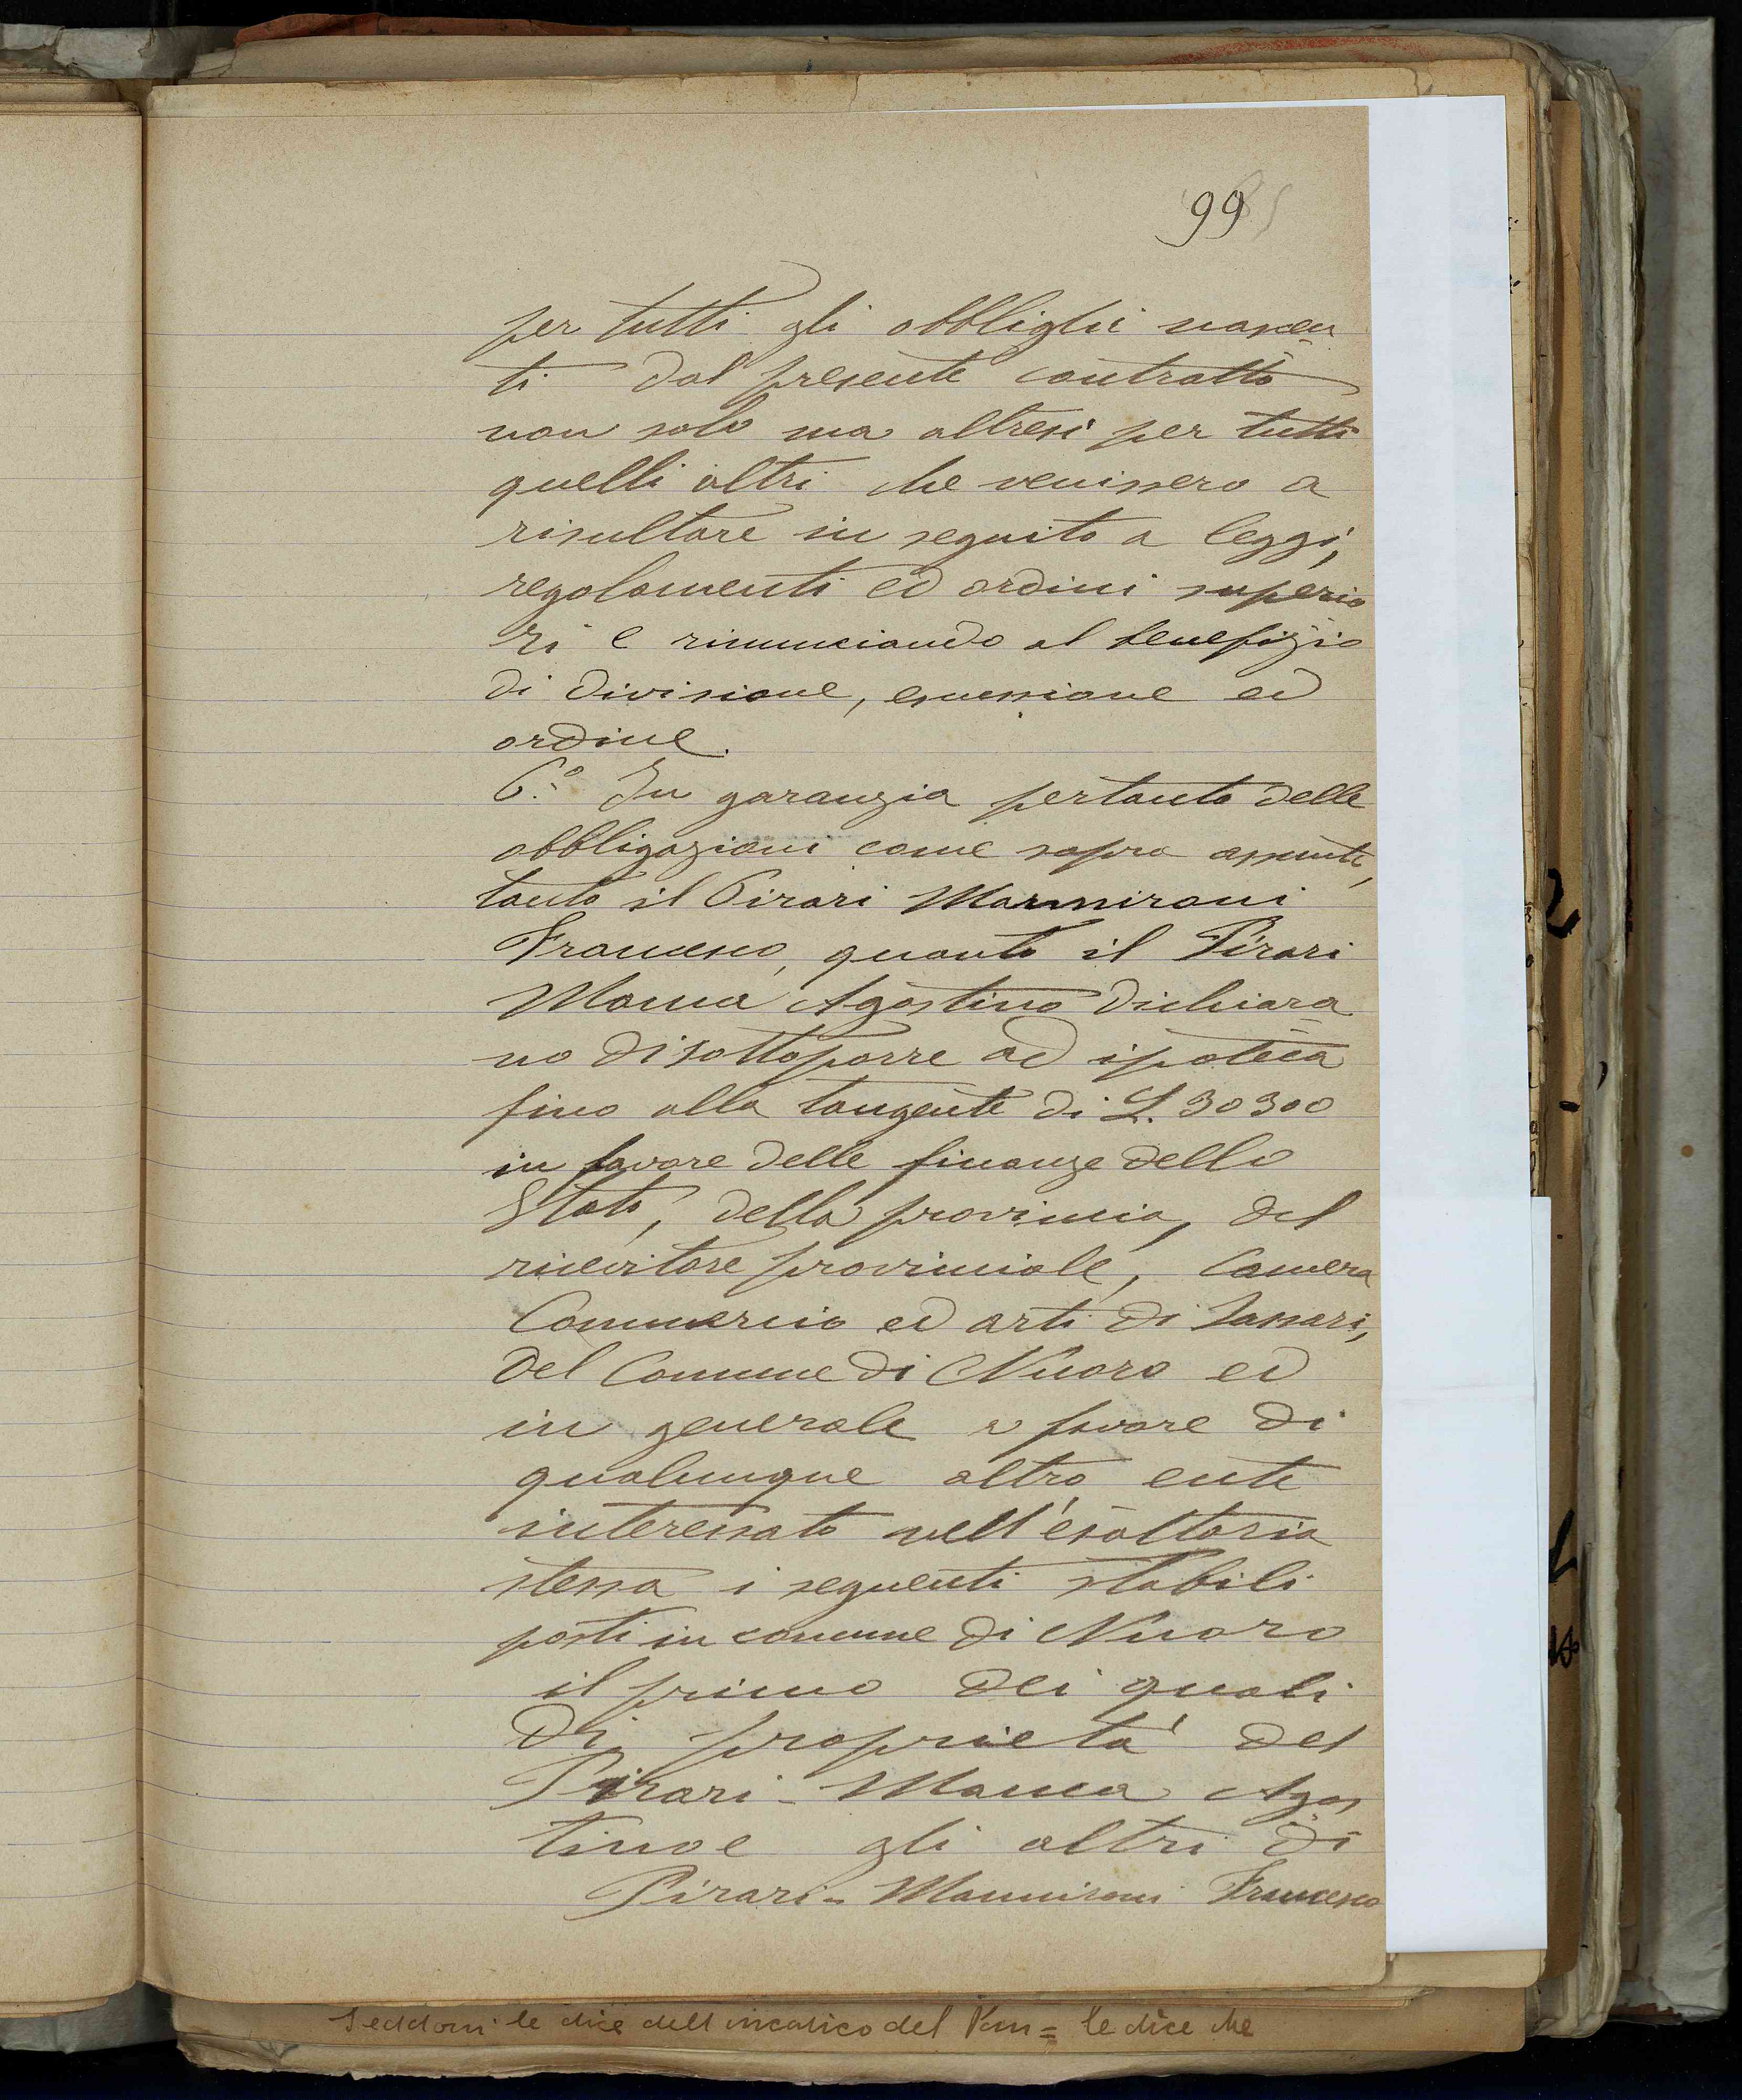 99
per tutti gli obblighi nascen
ti dal presente contratto
non solo ma altresi per tutti
quelli altri che venissero a
risultare in seguito a leggi,
regolamenti ed ordini superio
ri e rinunciando al benefizio
di divisione, escussione ed
ordine.
6.° In garanzia pertanto delle
obbligazioni come sopra assunte,
tanto il Pirari Mannironi
Francesco, quanto il Pirari
Manca Agostino dichiara
no di sottoporre ad ipoteca
fino alla tangente di L. 30300
in favore delle finanze dello
Stato, della provincia, del
ricevitore provinciale, Camera
Commercio ed arti di Sassari,
del Comune di Nuoro ed
in generale a favore di
qualunque altro ente
interessato nell'esattoria
stessa i seguenti stabili
posti in comune di Nuoro
il primo dei quali
di proprietà del
Pirari-Manca Agos
tino e gli altri di
Pirari-Mannironi Francesco
le dice dell incarico del = le dice che